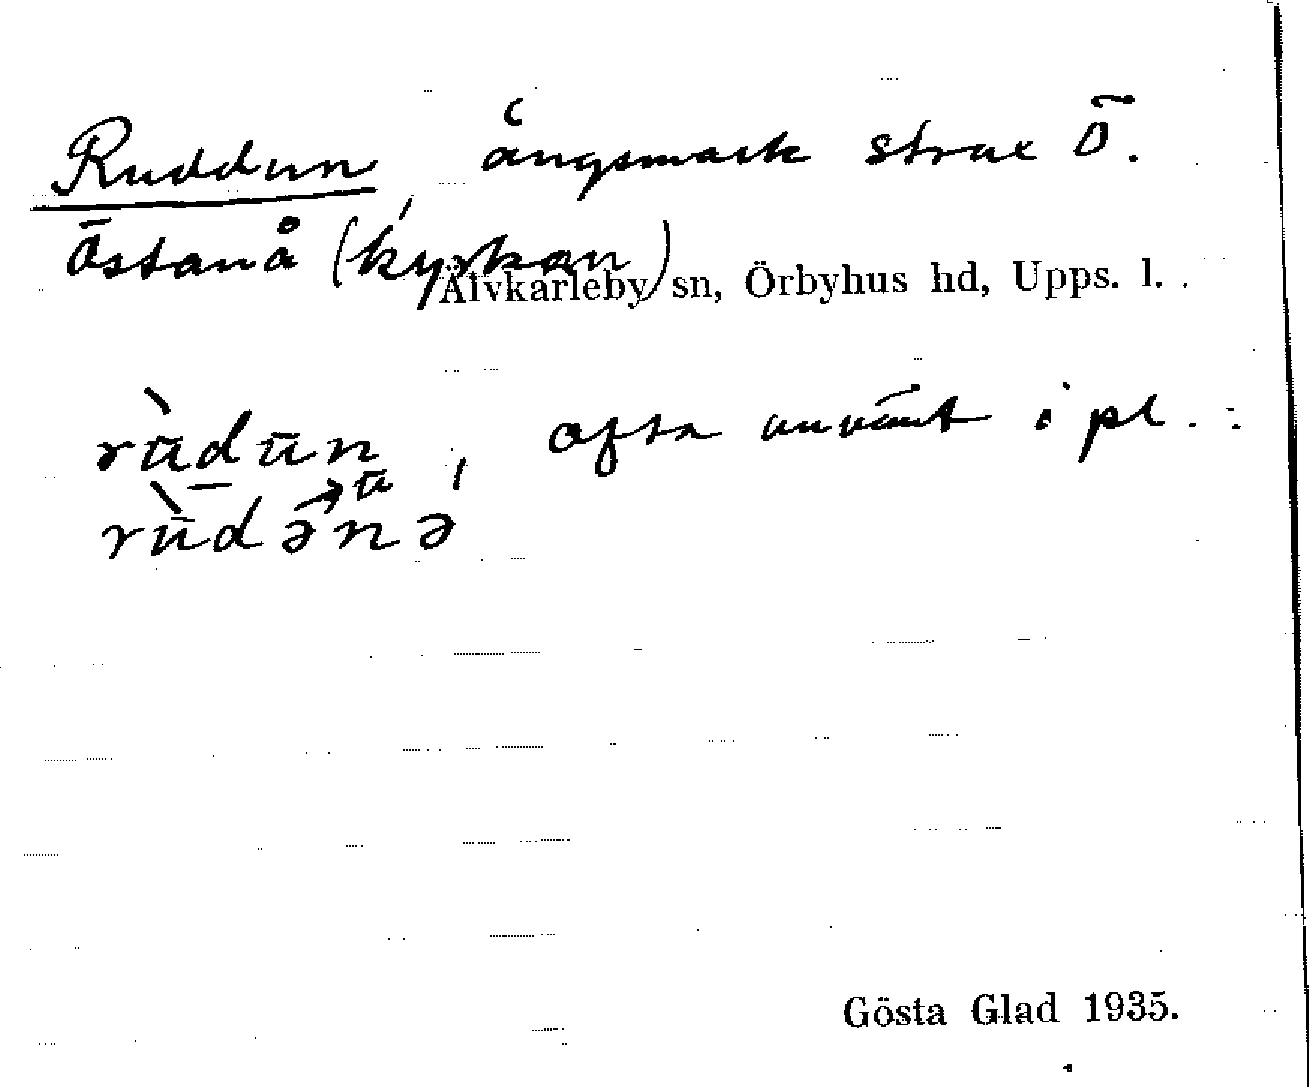 Ruddun, ängsmark strax Ö.
Östanå (kyrkan)
Älvkarleby sn, Örbyhus hd, Upps. l.
rùdūn, ofta använt i pl.:
ū
rùdənə
Gösta Glad 1935.